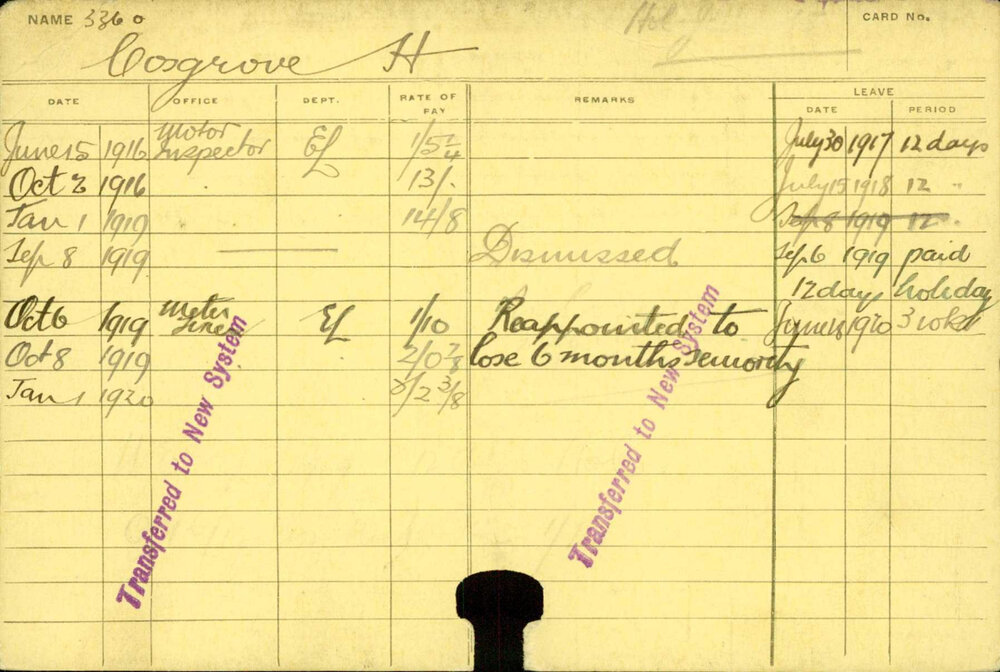 NAME 3360 CARD No.
Cosgrove H
DATE OFFICE DEPT. RATE OF PAY REMARKS LEAVE
DATE PERIOD
June 15 1916 Motor Inspector EL July 30 1917 12 days
Oct 2 1916 13/. July 15 1918 12 "
Jan 1 1919 14/8 Sep 8 1919 12
Sep 8 1919 Dismissed Sep 6 1919 paid
12 days holiday
Oct 6 1919 EL 1/10 Reappointed to June 1920 3
Oct 8 1919 2/0 7/8 lose 6 months seniority
Jan 1 1920 2/2 3/8
Transferred to New System
Transferred to New System